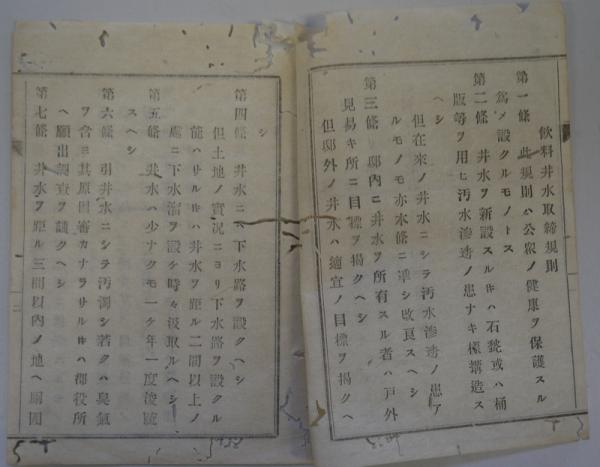 飲料井水取締規則
第一條　此規則ハ公衆ノ健康ヲ保護スル
爲メ設クルモノトス
第二條　井水ヲ新設スルキハ石甃或ハ桶
版等ヲ用ヒ汚水滲透ノ患ナキ樣搆造ス
ヘシ
但在來ノ井水ニシテ汚水滲透ノ患ア
ルモノモ亦本條ニ準シ改良スヘシ
第三條　邸内ニ井水ヲ所有スル者ハ戸外
見易キ所ニ目標ヲ揭クヘシ
但邸外ノ井水ハ適宜ノ目標ヲ揭クヘ
シ
第四條　井水ニハ下水路ヲ設クヘシ
但土地ノ實況ニヨリ下水路ヲ設クル
能ハサルキハ井水ヲ距ル二間以上ノ
處ニ下水溜ヲ設ケ時々汲取ルヘシ
第五條　井水ハ少ナクモ一ケ年一度浚疏
スヘシ
第六條　引井水ニシテ汚濁シ若クハ臭氣
ヲ含ミ其原因審カナラサルキハ郡役所
ヘ願出調査ヲ請クヘシ
第七條　井水ヲ距ル三間以内ノ地ヘ厠圊